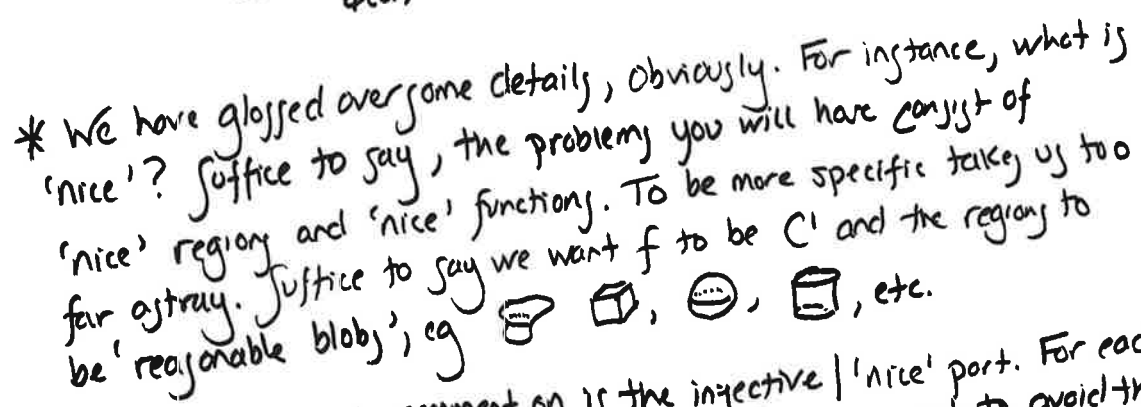 * We have glossed over some details, obviously. For instance, what is
'nice'? Suffice to say, the problems you will have consist of
'nice' regions and 'nice' functions. To be more specific takes us too
far astray. Suffice to say we want f to be C' and the regions to
be 'reasonable blobs', eg , , , etc.
on is the injective / 'nice' part. For eac
to avoid th